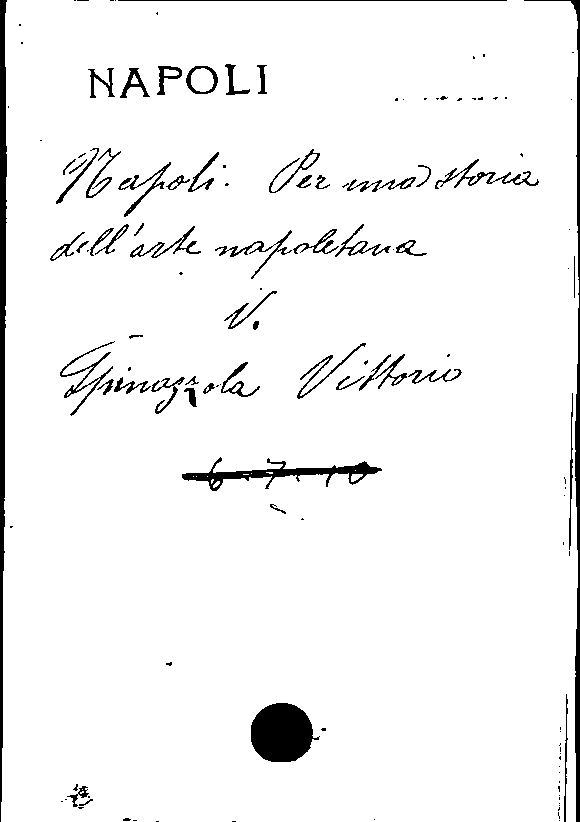 NAPOLI
Napoli. Per una storia
dell'arte napoletana
V.
Spinazzola Vittorio